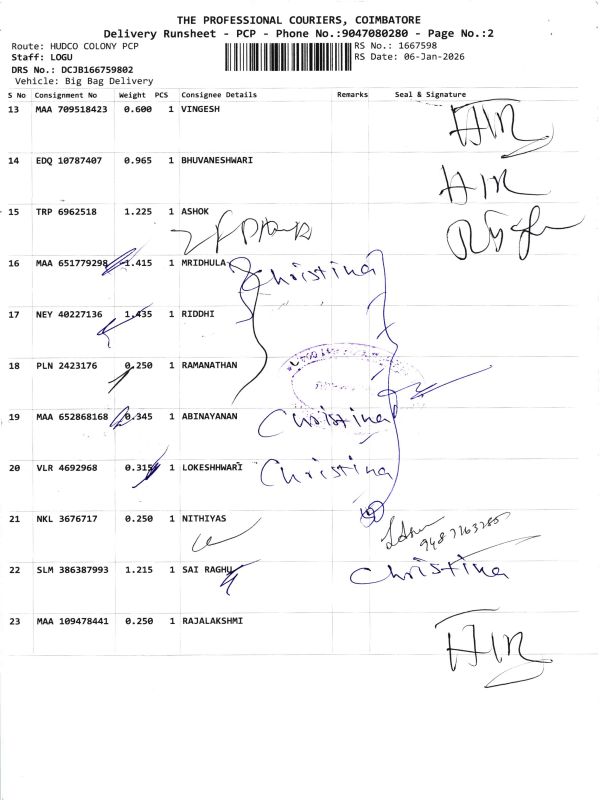 THE PROFESSIONAL COURIERS, COIMBATORE
Delivery Runsheet - PCP - Phone No.:9047080280 - Page No.:2
Route: HUDCO COLONY PCP RS No.: 1667598
Staff: LOGU RS Date: 06-Jan-2026
DRS No.: DCJB166759802
Vehicle: Big Bag Delivery
S No Consignment No Weight PCS Consignee Details Remarks Seal & Signature
13 MAA 709518423 0.600 1 VINGESH
14 EDQ 10787407 0.965 1 BHUVANESHWARI
15 TRP 6962518 1.225 1 ASHOK
16 MAA 651779298 1.415 1 MRIDHULA Christina
17 NEY 40227136 1.435 1 RIDDHI
18 PLN 2423176 0.250 1 RAMANATHAN
19 MAA 652868168 0.345 1 ABINAYANAN Christina
20 VLR 4692968 0.315 1 LOKESHHWARI Christina
21 NKL 3676717 0.250 1 NITHIYAS
22 SLM 386387993 1.215 1 SAI RAGHU Christina
23 MAA 109478441 0.250 1 RAJALAKSHMI